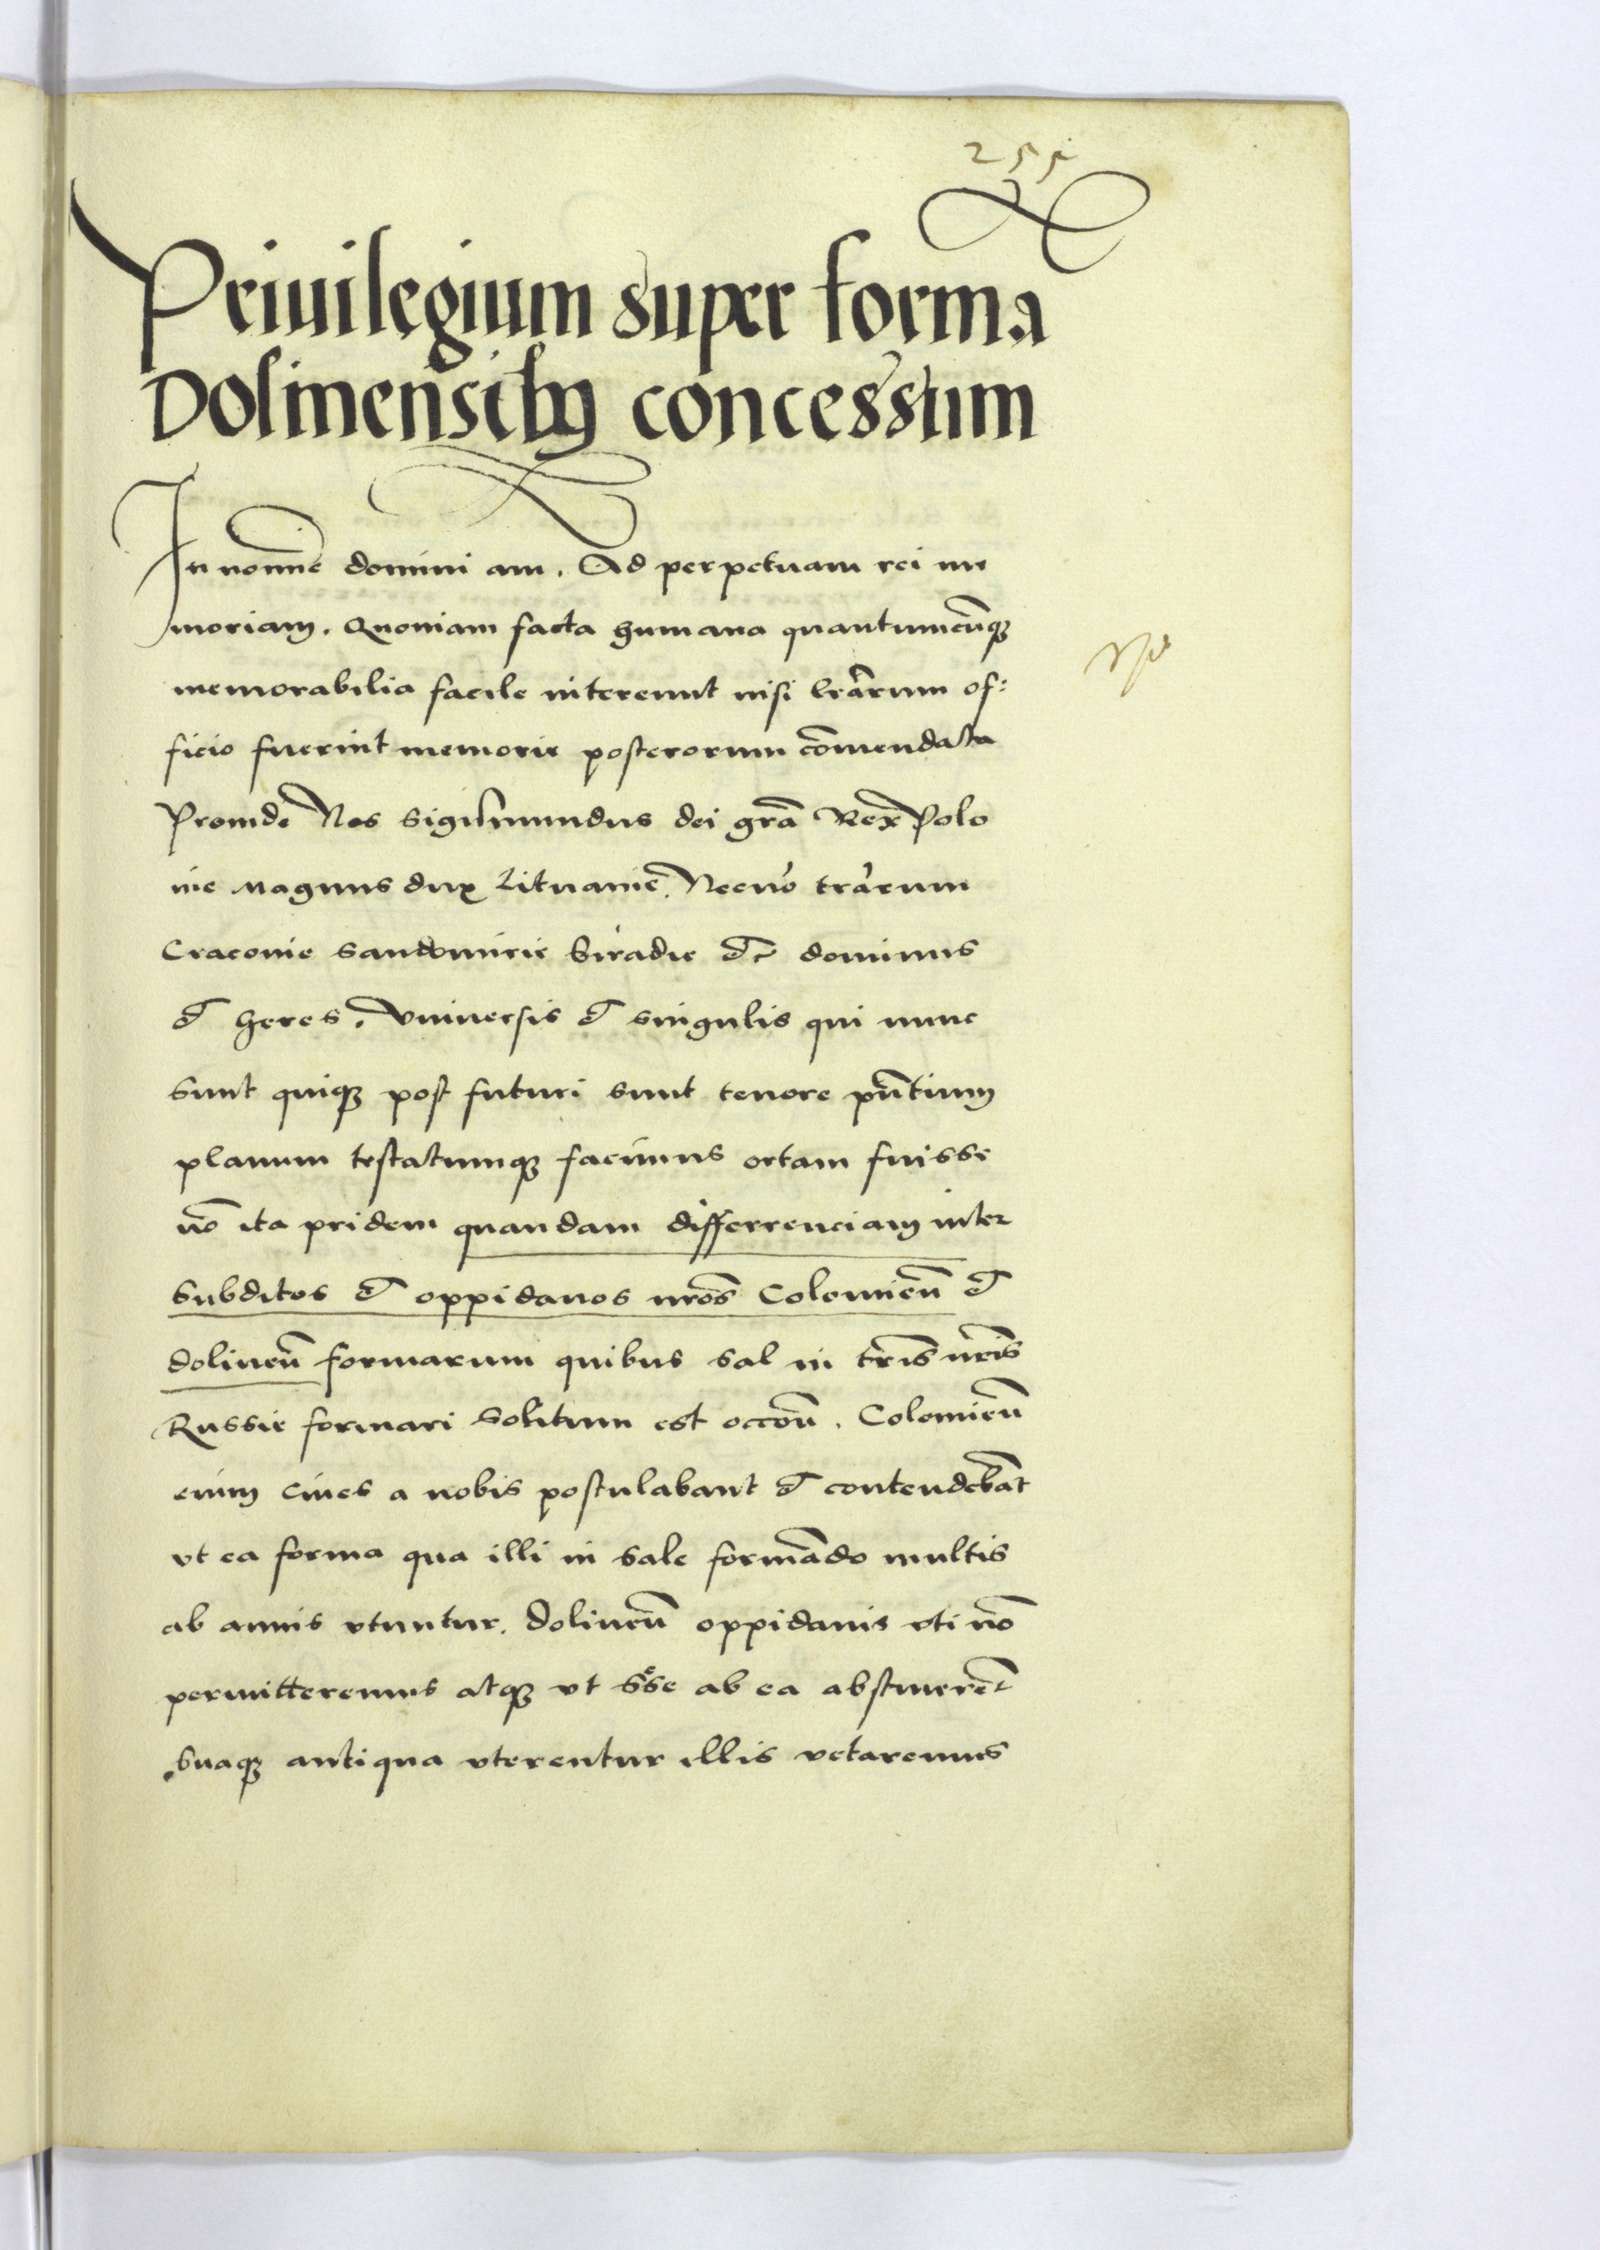 255
Priuilegium super forma
Dolinensibꝫ concessum
In nomīe domini am̄. Ad perpetuam rei me
moriam. Quoniam facta humana quantumcūqꝫ
memorabilia facile intereunt nisi lr̄arum of:
ficio fuerint memorie posterorum cōmendata
Proinde Nos Sigismundus dei gr̄a Rex Polo
nie Magnus dux Lituanie, Necnō tr̄arum
Cracouie Sandomirie Siradie &c̃ dominus
& heres. Vniuersis & singulis qui nunc
sunt quiqꝫ post futuri sunt tenore pñtium
planum testatumqꝫ facimus ortam fuisse
nō ita pridem quandam differrenciam inter
Subditos & oppidanos nr̄os Colomieñ &
dolineñ formarum quibus sal in tr̄is nr̄is
Russie formari solitum est occoñ. Colomieñ
enim ciues a nobis postulabant & contendebāt
vt ea forma qua illi in sale formādo multis
ab annis vtuntur. dolineñ oppidanis vti nō
permitteremus atqꝫ vt sese ab ea abstinerēt
suaqꝫ antiqua vterentur illis vetaremus